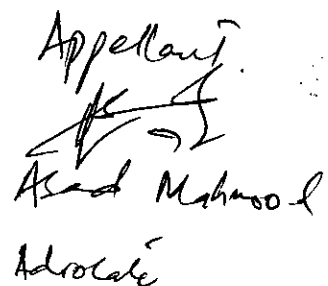 Appellant.
Asad Mahmood
Advocate